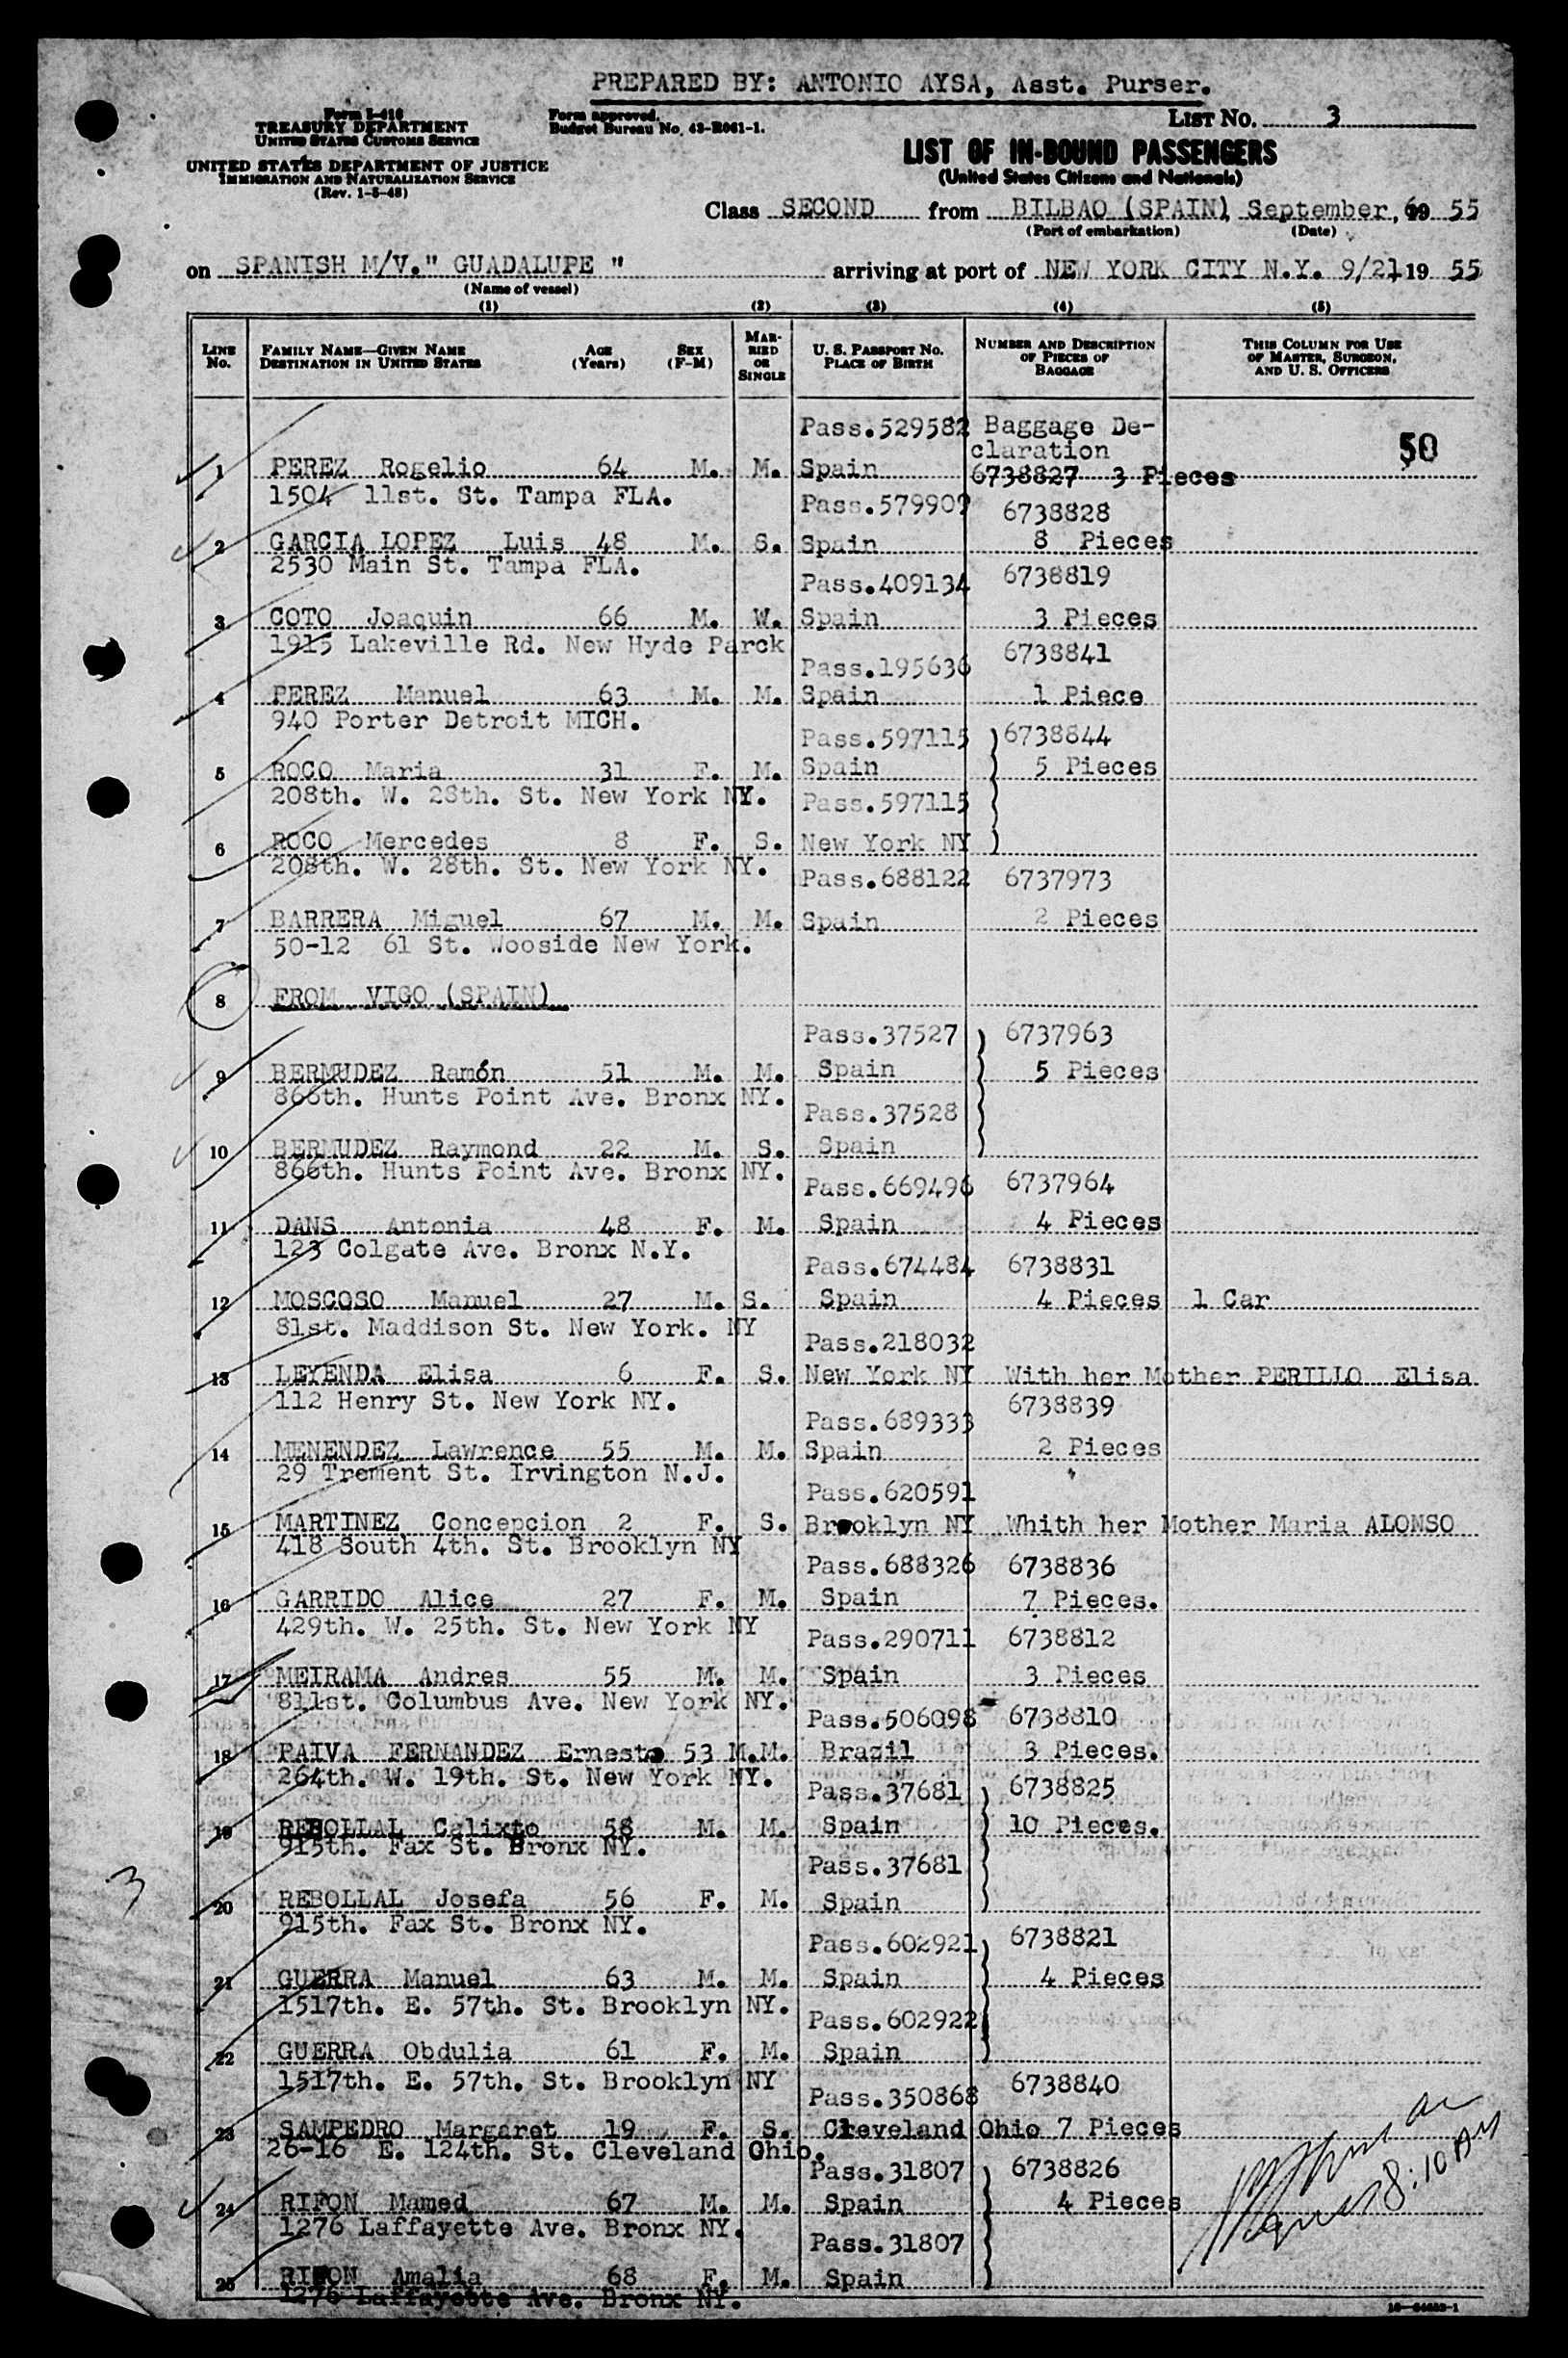 PREPARED BY: ANTONIO AYSA, Asst. Purser.
Form I-416
TREASURY DEPARTMENT
UNITED STATES CUSTOMS SERVICE
UNITED STATES DEPARTMENT OF JUSTICE
IMMIGRATION AND NATURALIZATION SERVICE
(Rev. 1-5-48)
Form approved.
Budget Bureau No. 43-R061-1.
LIST No. 3
LIST OF IN-BOUND PASSENGERS
(United States Citizens and Nationals)
Class SECOND from BILBAO (SPAIN) September 6, 19 55
(Port of embarkation) (Date)
on SPANISH M/V." GUADALUPE " arriving at port of NEW YORK CITY N.Y. 9/21 19 55
(Name of vessel)
(1) (2) (3) (4) (5)
LINE No. FAMILY NAME—GIVEN NAME DESTINATION IN UNITED STATES AGE (Years) SEX (F-M) MARRIED OR SINGLE U. S. PASSPORT NO. PLACE OF BIRTH NUMBER AND DESCRIPTION OF PIECES OF BAGGAGE THIS COLUMN FOR USE OF MASTER, SURGEON, AND U. S. OFFICERS
Pass.529582 Baggage De-
claration 50
1 PEREZ Rogelio 64 M. M. Spain 6738827 3 Pieces
1504 11st. St. Tampa FLA.
Pass.579909 6738828
2 GARCIA LOPEZ Luis 48 M. S. Spain 8 Pieces
2530 Main St. Tampa FLA.
Pass.409134 6738819
3 COTO Joaquin 66 M. W. Spain 3 Pieces
1915 Lakeville Rd. New Hyde Parck
Pass.195636 6738841
4 PEREZ Manuel 63 M. M. Spain 1 Piece
940 Porter Detroit MICH.
Pass.597115 6738844
5 ROCO Maria 31 F. M. Spain 5 Pieces
208th. W. 28th. St. New York NY.
Pass.597115
6 ROCO Mercedes 8 F. S. New York NY
208th. W. 28th. St. New York NY.
Pass.688122 6737973
7 BARRERA Miguel 67 M. M. Spain 2 Pieces
50-12 61 St. Wooside New York.
8 FROM VIGO (SPAIN)
Pass.37527 6737963
9 BERMUDEZ Ramón 51 M. M. Spain 5 Pieces
866th. Hunts Point Ave. Bronx NY.
Pass.37528
10 BERMUDEZ Raymond 22 M. S. Spain
866th. Hunts Point Ave. Bronx NY.
Pass.669496 6737964
11 DANS Antonia 48 F. M. Spain 4 Pieces
123 Colgate Ave. Bronx N.Y.
Pass.674484 6738831
12 MOSCOSO Manuel 27 M. S. Spain 4 Pieces 1 Car
81st. Maddison St. New York. NY
Pass.218032
13 LEYENDA Elisa 6 F. S. New York NY With her Mother PERILLO Elisa
112 Henry St. New York NY.
Pass.689333 6738839
14 MENENDEZ Lawrence 55 M. M. Spain 2 Pieces
29 Trement St. Irvington N.J.
Pass.620591
15 MARTINEZ Concepcion 2 F. S. Brooklyn NY Whith her Mother Maria ALONSO
418 South 4th. St. Brooklyn NY
Pass.688326 6738836
16 GARRIDO Alice 27 F. M. Spain 7 Pieces.
429th. W. 25th. St. New York NY
Pass.290711 6738812
17 MEIRAMA Andres 55 M. M. Spain 3 Pieces
811st. Columbus Ave. New York NY.
Pass.506098 6738810
18 PAIVA FERNANDEZ Ernesto 53 M.M. Brazil 3 Pieces.
264th. W. 19th. St. New York NY.
Pass.37681 6738825
19 REBOLLAL Calixto 58 M. M. Spain 10 Pieces.
915th. Fax St. Bronx NY.
Pass.37681
3
20 REBOLLAL Josefa 56 F. M. Spain
915th. Fax St. Bronx NY.
Pass.602921 6738821
21 GUERRA Manuel 63 M. M. Spain 4 Pieces
1517th. E. 57th. St. Brooklyn NY.
Pass.602922
22 GUERRA Obdulia 61 F. M. Spain
1517th. E. 57th. St. Brooklyn NY
Pass.350868 6738840
23 SAMPEDRO Margaret 19 F. S. Cleveland Ohio 7 Pieces
26-16 E. 124th. St. Cleveland Ohio.
Pass.31807 6738826
24 RIFON Mamed 67 M. M. Spain 4 Pieces
1276 Laffayette Ave. Bronx NY.
8:10 AM
Pass.31807
25 RIFON Amalia 68 F. M. Spain
1276 Laffayette Ave. Bronx NY.